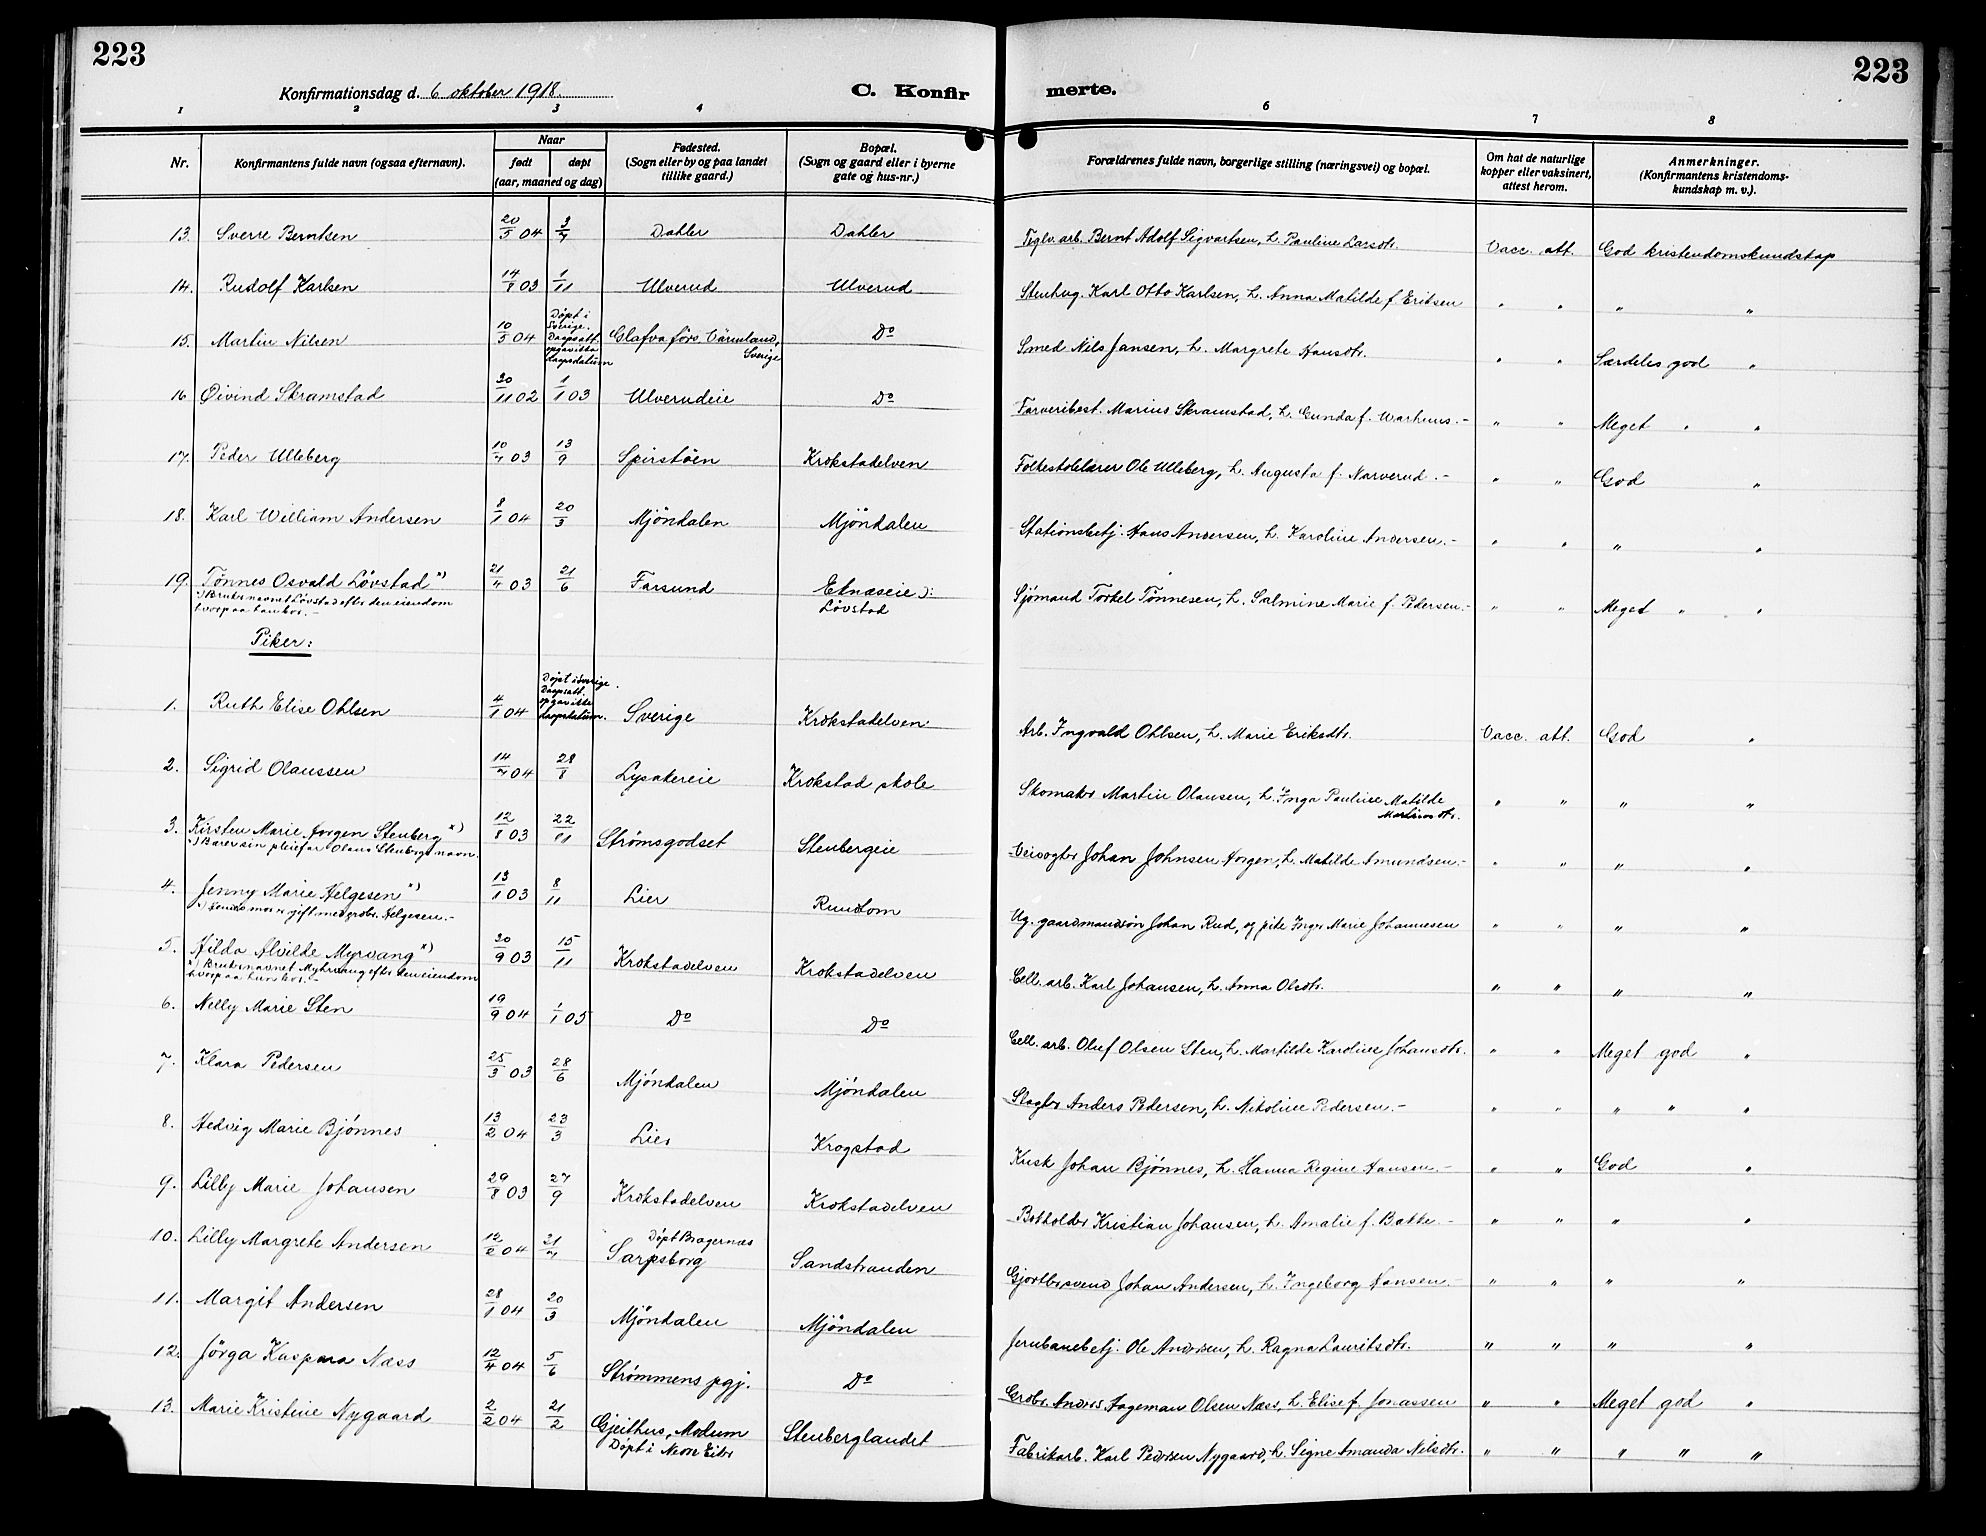 223
223
Konfirmationsdag d. 6 oktober 1918.
C. Konfir merte.
1 2 3 4 6 7 8
Nr. Konfirmantens fulde navn (ogsaa efternavn). Naar født døpt (aar, maaned og dag) Fødested. (Sogn eller by og paa landet tillike gaard.) Bopæl. (Sogn og gaard eller i byerne gate og hus-nr.) Forældrenes fulde navn, borgerlige stilling (næringsvei) og bopæl. Om hat de naturlige kopper eller vaksinert, attest herom. Anmerkninger. (Konfirmantens kristendomskundskap m. v.).
13. Sverre Berntsen 20/5 04 3/7 Dahler Dahler Teglv. arb. Bernt Adolf Sigvartsen, h. Pauline Larsdtr. Vacc. att. God kristendomskundskap
14. Rudolf Karlsen 14/8 03 1/11 Ulverud Ulverud Stenhug. Karl Otto Karlsen, h. Anna Matilde f. Eriksen " " " "
15. Martin Nilsen 10/5 04 Døpt i Sverige. Daapsatt. opgav ikke daapsdatum Glafva förs. Värmland, Sverige Do Smed Nils Jansen, h. Margrete Hansdtr. " " Særdeles god "
16. Øivind Skramstad 20/11 02 1/1 03 Ulverudeie Do Farveribest. Marius Skramstad, h. Gunda f. Warhuus.- " " Meget " "
17. Peder Ulleberg 10/7 03 13/9 Spirstøen Krokstadelven Folkeskolelærer Ole Ulleberg, h. Augusta f. Narverud.- " " God "
18. Karl William Andersen 8/1 04 20/3 Mjöndalen Mjöndalen Stationsbetj. Hans Andersen, h. Karoline Andersen.- " " " "
19. Tønnes Osvald Lövstad x) 21/4 03 21/6 Farsund Eknæseie ɔ: Lövstad Sjömand Torkel Tönnesen, h. Salmine Marie f. Pedersen.- " " Meget " "
x) Bruker navnet Lövstad efter den eiendom hvorpaa han bor.-
Piker:
1. Ruth Elise Ohlsen 4/1 04 Døpt i Sverige. Daapsatt. opgav ikke daapsdatum. Sverige Krokstadelven Arb. Ingvald Ohlsen, h. Marie Eriksdtr. Vacc. att. God "
2. Sigrid Olaussen 14/7 04 28/8 Lysakereie Krokstad skole Skomaker Martin Olausen, h. Inga Pauline Matilde Martinsdtr. " " " "
3. Kirsten Marie Horgen Stenberg x) 12/8 03 22/11 Strømsgodset Stenbergeie Veivogter Johan Johnsen Horgen, h. Matilde Amundsen.- " " " "
x) Bærer sin pleiefar Olaus Stenbergs navn.
4. Jenny Marie Helgesen x) 13/1 03 8/11 Lier Rundtom Ug. gaardmandssön Johan Rud, og pike Inger Marie Johannesen " " " "
x) Hendes mor er gift med grdbr. Helgesen.-
5. Hilda Alvilde Myrvang x) 20/9 03 15/11 Krokstadelven Krokstadelven Cell. arb. Karl Johansen, h. Anna Olsdtr. " " " "
x) Bruker navnet Myhrvang efter den eiendom hvorpaa hun bor.-
6. Nelly Marie Sten 19/9 04 1/1 05 Do Do Cell. arb. Oluf Olsen Sten, h. Martilde Karoline Johansdtr. " " Meget god "
7. Klara Pedersen 25/3 03 28/6 Mjöndalen Mjöndalen Slagter Anders Pedersen, h. Nikoline Pedersen.- " " " " "
8. Hedvig Marie Bjønnes 13/2 04 23/3 Lier Krogstad Kusk Johan Bjønnes, h. Hanna Regine Hansen.- " " God "
9. Lilly Marie Johansen 29/8 03 27/9 Krokstadelven Krokstadelven Bokholder Kristian Johansen, h. Amalie f. Bakke.- " " " "
10. Lilly Margrete Andersen 12/2 04 21/7 Døpt Bragernæs Sarpsborg Sandstranden Gjørtlersvend Johan Andersen, h. Ingeborg Hansen.- " " " "
11. Margit Andersen 28/1 04 20/3 Mjöndalen Mjöndalen Jernbanebetj. Ole Andersen, h. Ragna Lauritsdtr. " " " "
12. Jörga Kaspara Næss 12/4 04 5/6 Strømmens pgj. Do Grdbr. Anders Hageman Olsen Næss, h. Elise f. Jonassen " " Meget god "
13. Marie Kristine Nygaard 2/2 04 21/2 Gjeithus, Modum Døpt i Nedre Eiker Stenberglandet Fabrikarb. Karl Pedersen Nygaard, h. Signe Amanda Nilsdtr. " " " " "